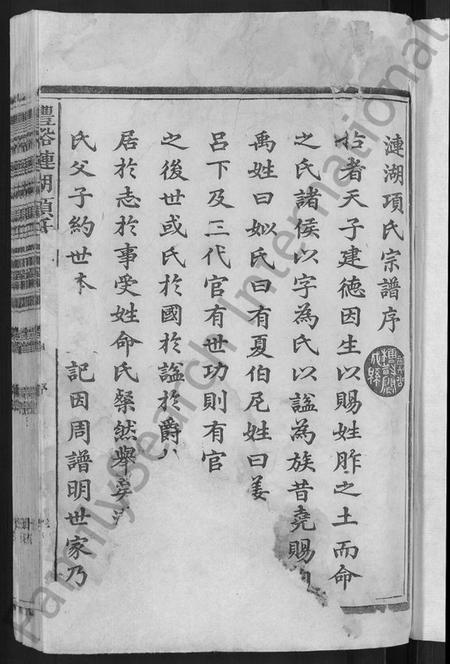 漣湖項氏宗譜序
古者天子建德因生以賜姓胙之土而命
之氏諸侯以字為氏以諡為族昔堯賜
禹姓曰姒氏曰有夏伯尼姓曰姜
呂下及三代官有世功則有官
之後世或氏於國於諡於爵
居於志於事受姓命氏粲然舉矣
氏父子約世本 記因周譜明世家乃
漣湖項
序
FamilySearch International